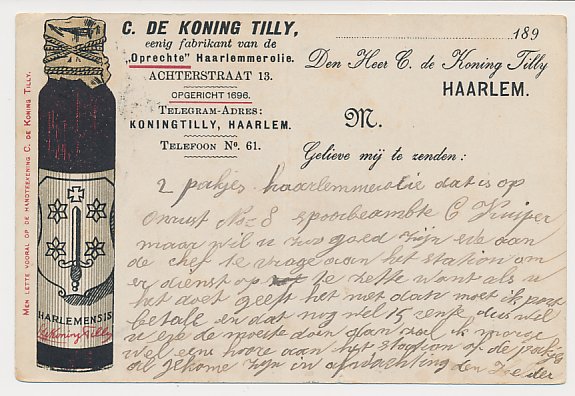 C. DE KONING TILLY,
eenig fabrikant van de
„Oprechte" Haarlemmerolie.
ACHTERSTRAAT 13.
OPGERICHT 1696.
TELEGRAM-ADRES:
KONINGTILLY, HAARLEM.
TELEFOON No. 61.
MEN LETTE VOORAL OP DE HANDTEEKENING C. DE KONING TILLY.
HARLEMENSIS
C de Koning Tilly
189
Den Heer C. de Koning Tilly
HAARLEM.
M.
Gelieve mij te zenden:
2 pakjes haarlemmerolie dat is op
onrust No 8 spoorbeambte C Kuiper
maar wil u zoo goed zijn eve aan
de chef te vrage aan het station om
er dienst op te zette want als u
het doet geeft het niet daar moet ik
betale en dat nog wel 15 cente dus wil
u eve de moeite doen dan zal ik
wel eens hoore aan het station of de pakjes
al gekome zijn in afwachting